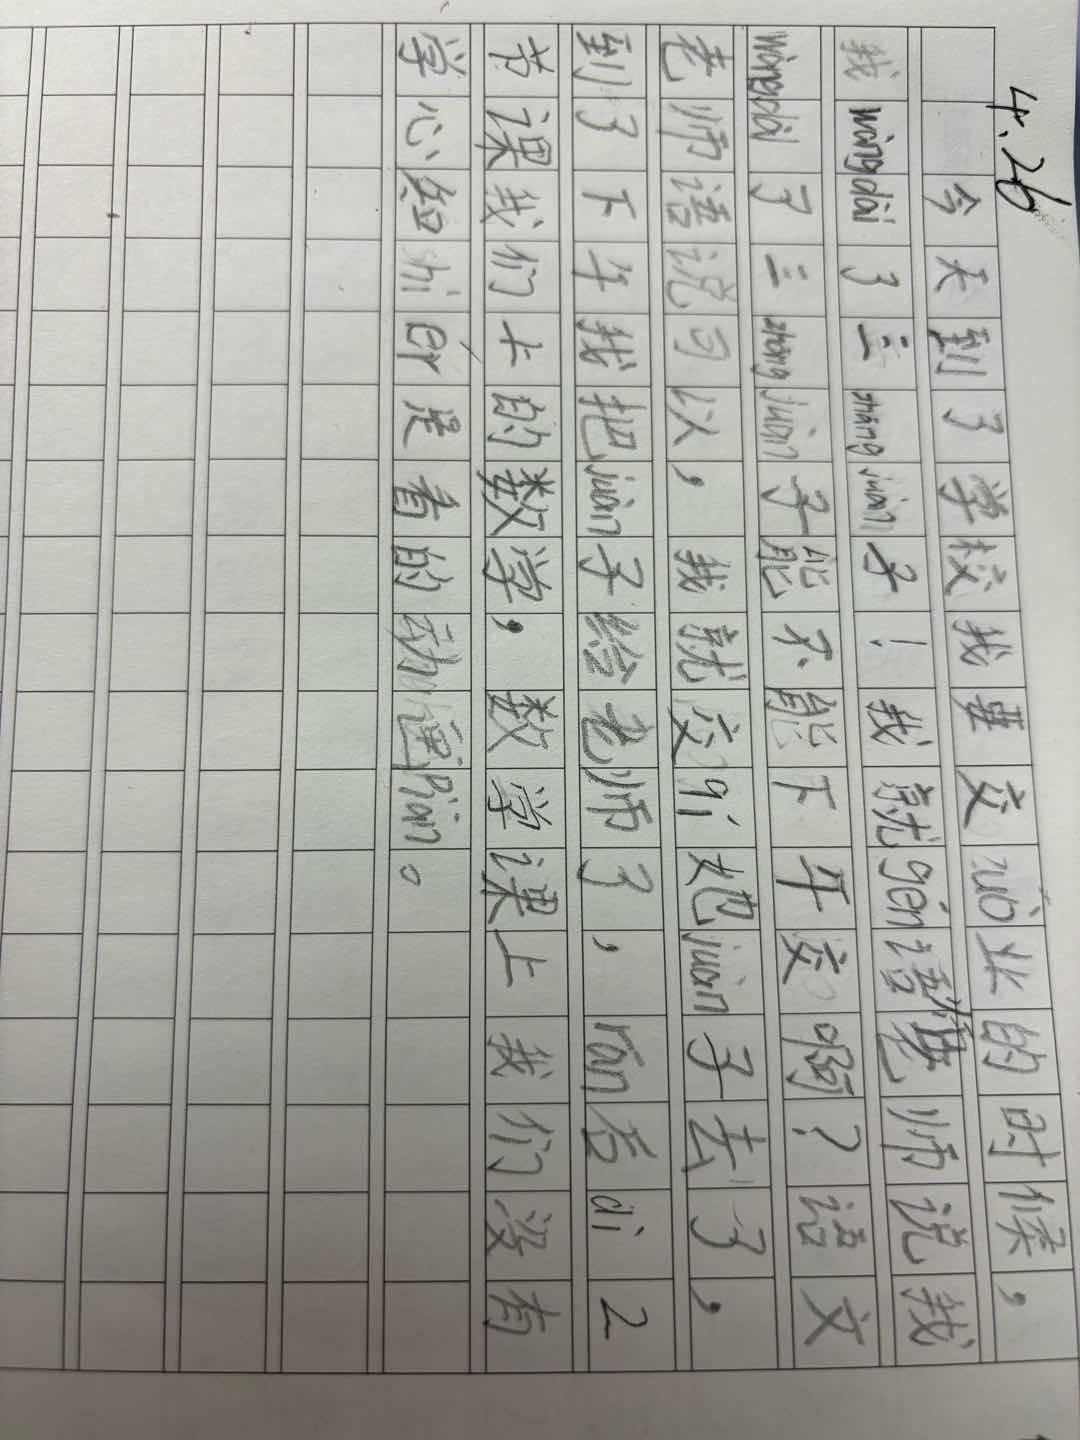 4.26
今天到了学校我要交zuò业的时候，
我wàngdài了三zhāngjuàn子！我就gēn语文老师说我
wàngdài了三zhāngjuàn子能不能下午交啊？语文
老师语说可以，我就交qi她juàn子去了，
到了下午我把juàn子给老师了，rán后dì2
节课我们上的数学，数学课上我们没有
学心知shiér是看的动画Piàn。